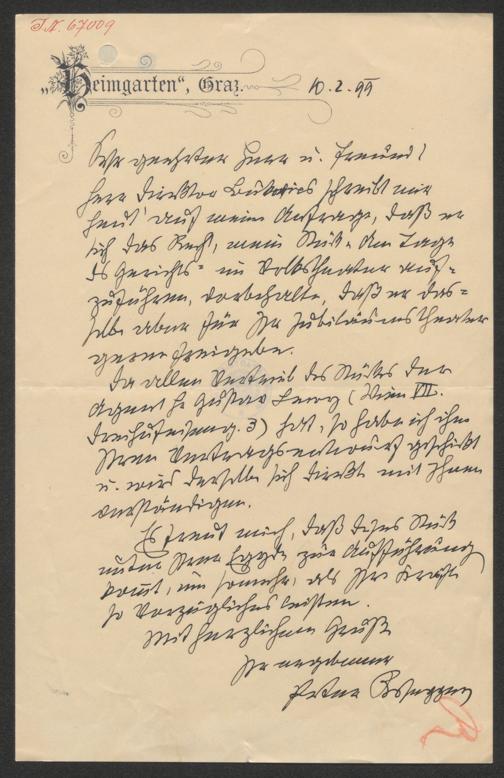 J.N. 67009
„Heimgarten“, Graz. 10.2.99
Sehr geehrter Herr u. Freund!
Herr Direktor Bukovics schreibt mir
heut' auf meine Anfrage, daß er
sich das Recht, mein Stück „Am Tage
des Gerichts“ im Volkstheater auf-
zuführen, vorbehalte, daß er das-
selbe aber für Ihr Jubiläumstheater
gerne freigebe.
Da allen Vertrieb des Stückes der
Agent H. Gustav Lewy (Wien VII.
Dreihufeiseng. 3) hat, so habe ich ihm
Ihren Vertragsentwurf geschickt
u. wird derselbe sich direkt mit Ihnen
verständigen.
Es freut mich, daß dieses Stück
unter Ihrer Egyde zur Aufführung
kommt, um somehr, als Ihre Kräfte
so Vorzügliches leisten.
Mit herzlichem Gruß
Ihr ergebener
Peter Rosegger